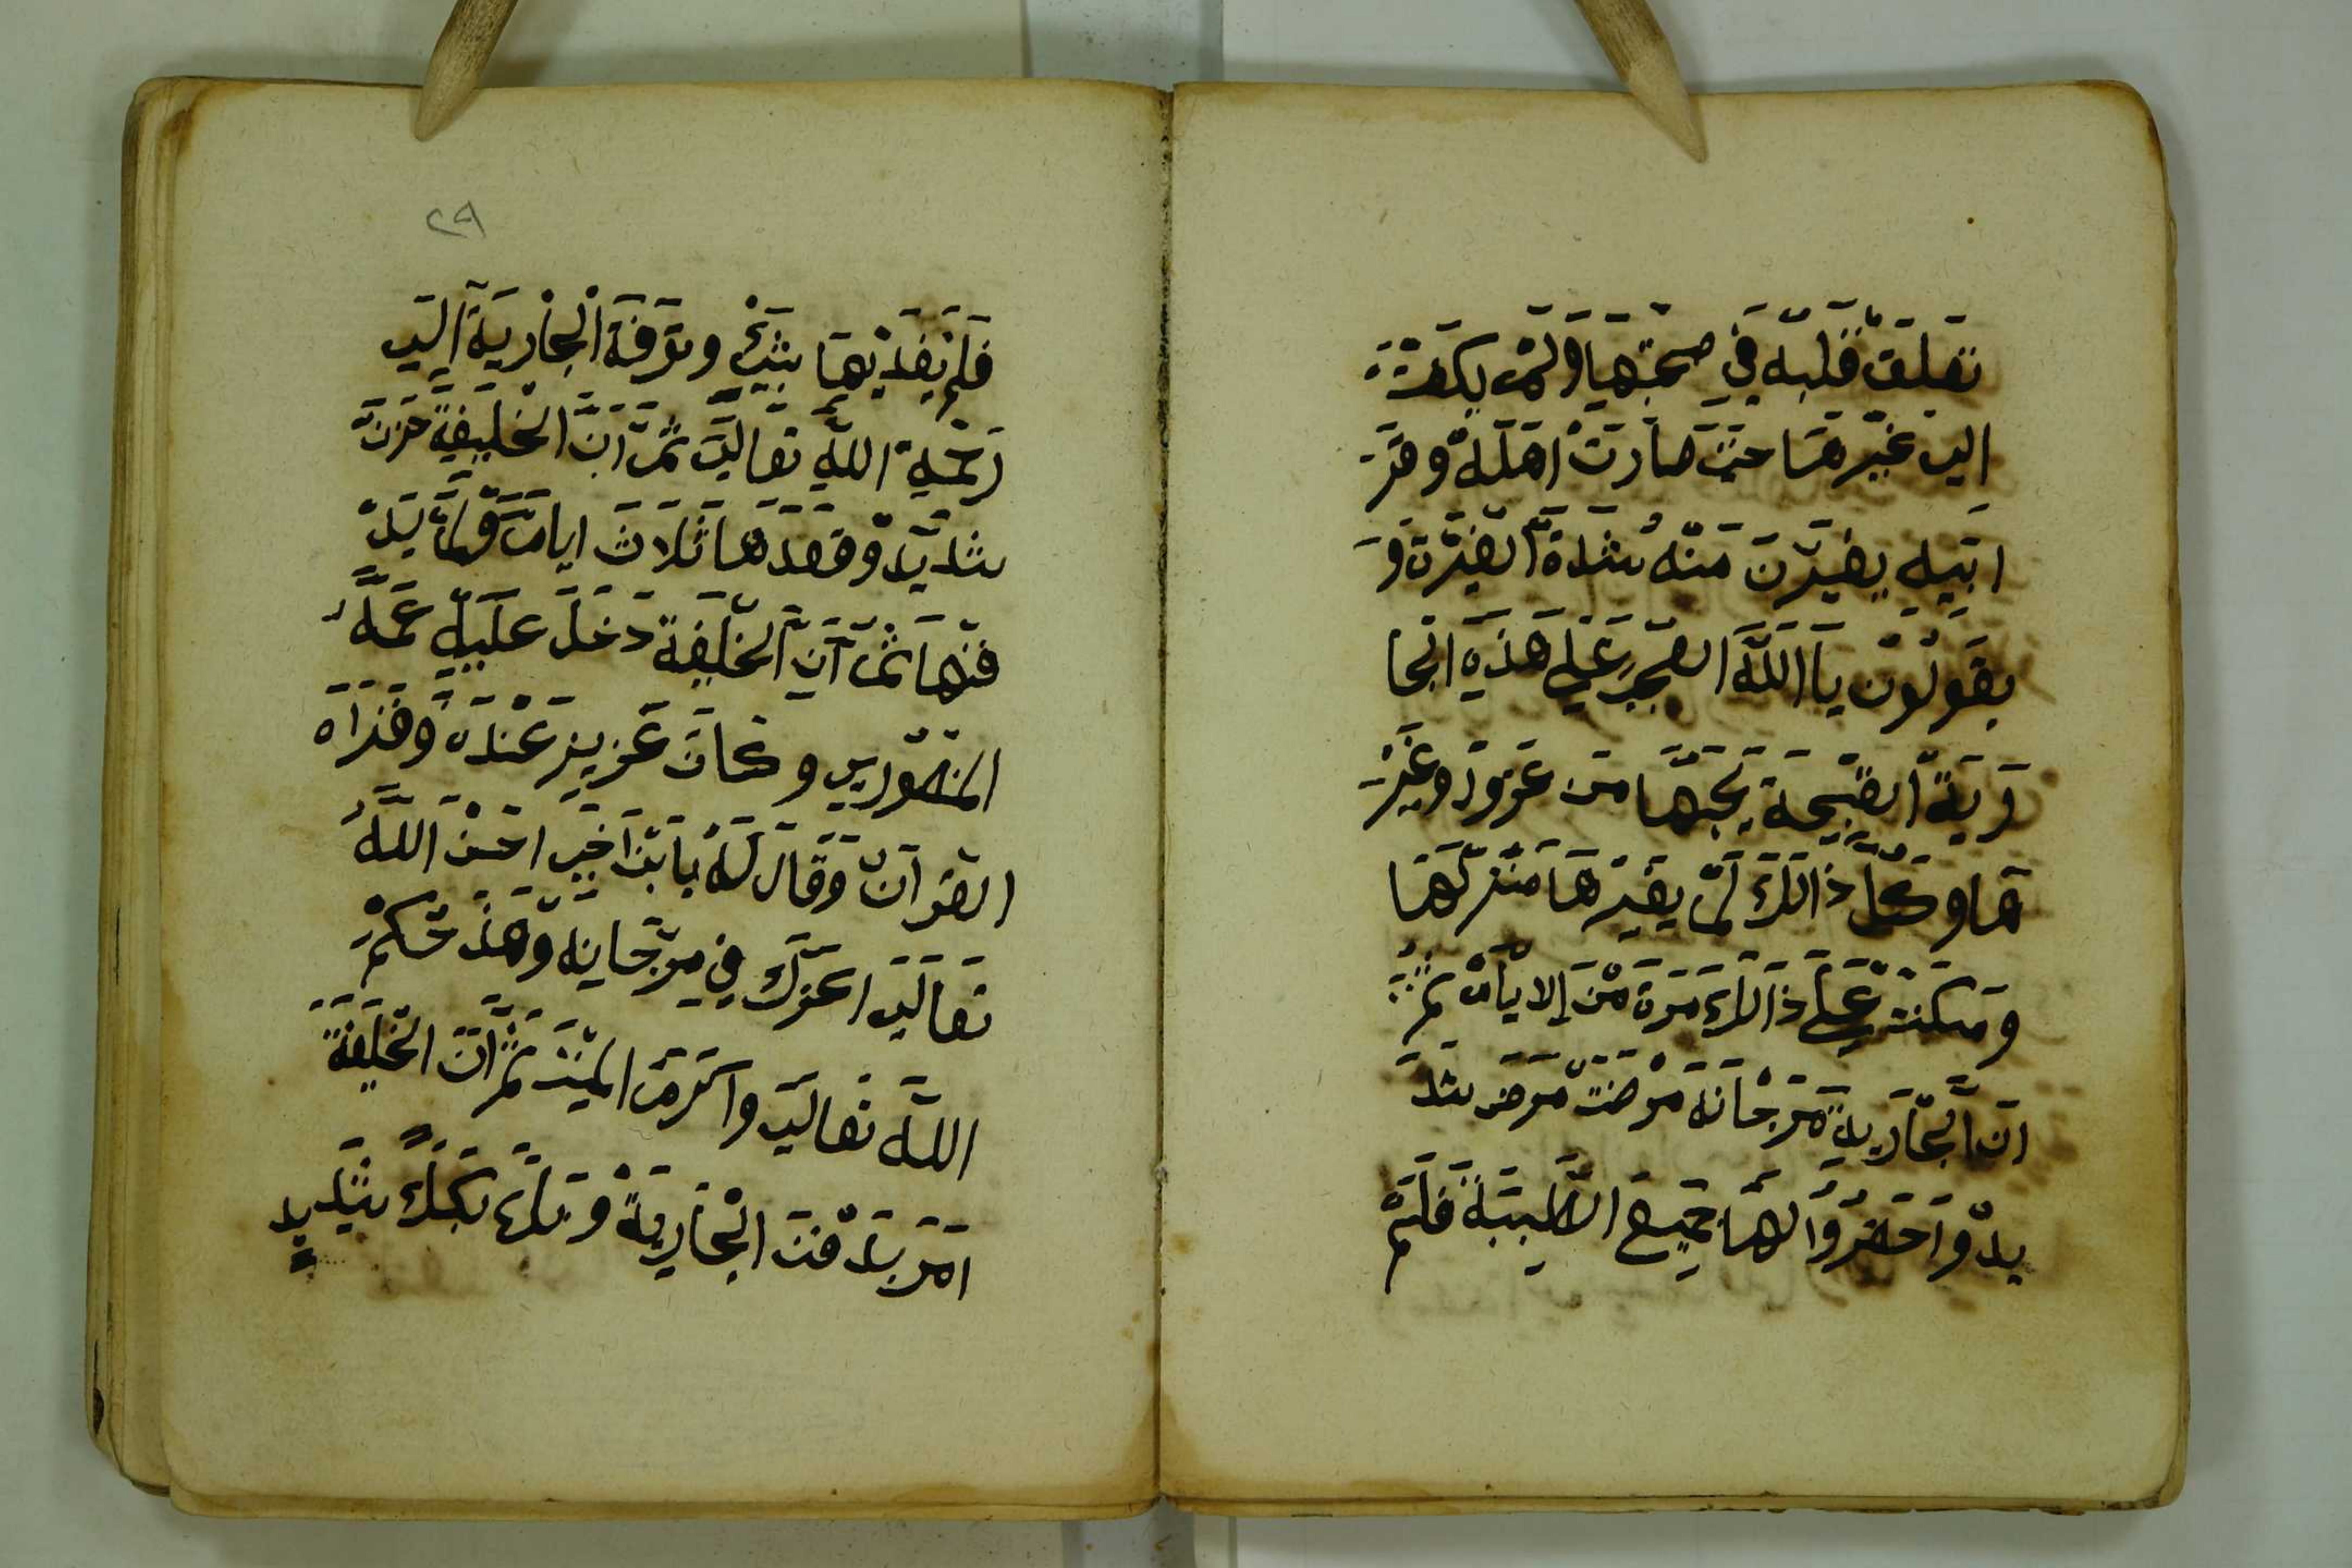 تعلق قلبه في صحبتها ولم يكفت
الى غيرها حتى صارت اهله وقر
ابيه يغيرن منه شدة الغيرة و
يقولون يا الله العجب على هذه الجا
رية القبيحة يحبها من عزود وغير
ها وكل ذالك لم يغيرها منزلها
ومكنت على ذالك مرة من الايام ثم
ان الجارية مرجانة مرضت مرض شد
يد واحضروا لها جميع الطبيبة فلم
٢٩
فلم يفديها بشئ وتوفة الجارية الى
رحمة الله تعالى ثم ان الخليفة حزن
شديد وقعد ها ثلاث ايام ولم يد
فنها ثم ان الخليفة دخل عليه عمه
المنصوري وكان عزيز عنده وقراه
القرآن وقال له يابن اخي احسن الله
تعالى اعزك في مرجانه وهذ حكم
الله تعالى واكرم الميت ثم ان الخليفة
امر بدفن الجارية وبكى بكاء شديد